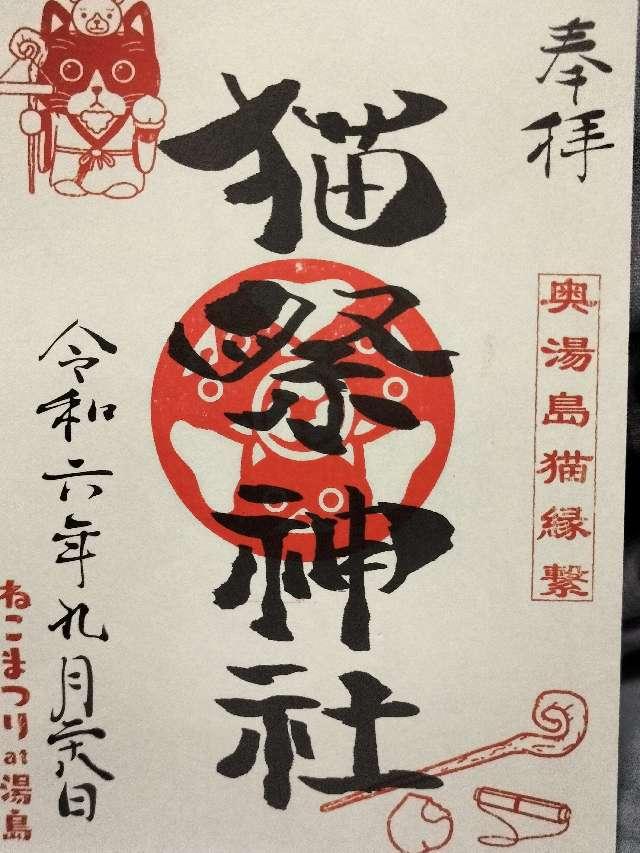 奉拝
奥湯島猫縁繋
猫祭神社
令和六年九月二十八日
ねこまつり at 湯島